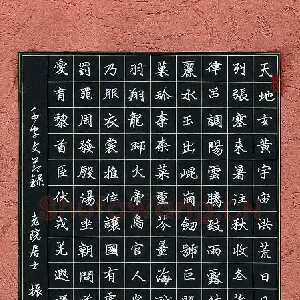 天地玄黃宇宙洪荒日
列張寒來暑往秋收冬
律呂調陽雲騰致雨露
麗水玉出崑崗劍號巨
菓珍李柰菜重芥薑海
羽翔龍師火帝鳥官人
乃服衣裳推位讓國有
罰罪周發殷湯坐朝問
愛育黎首臣伏戎羌遐
千字文節錄 居士 振